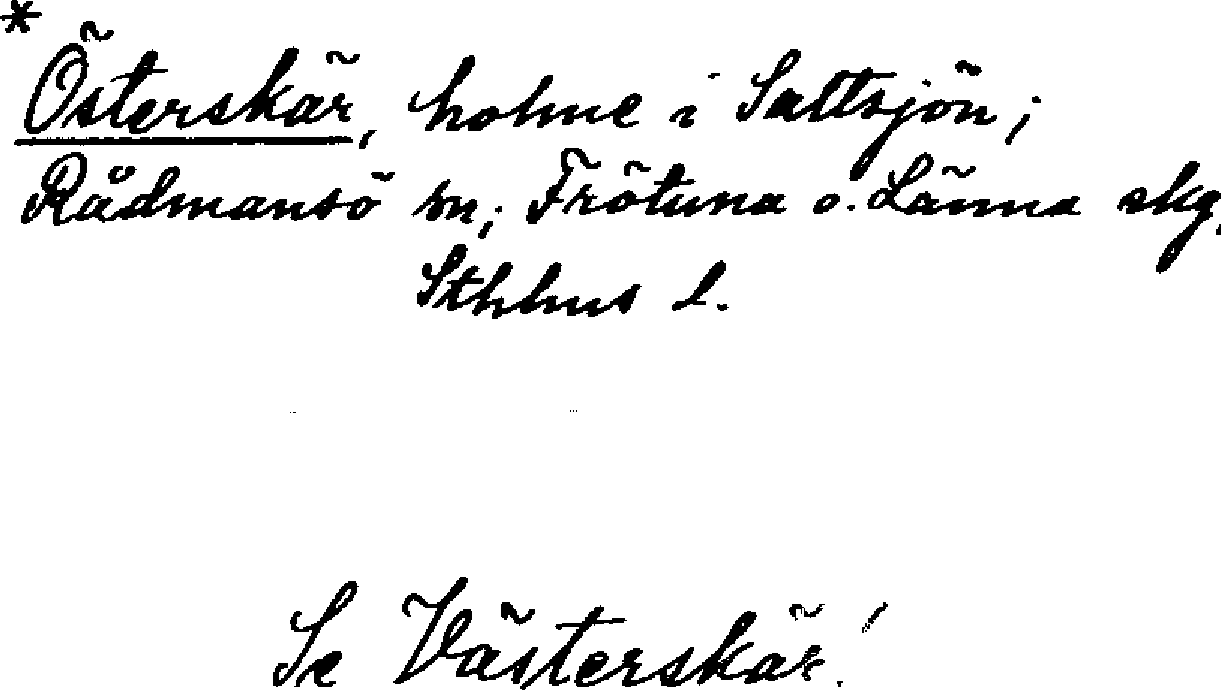 *
Österskär, holme i Saltsjön;
Rådmansö sn; Frötuna o. Länna skg,
Sthlms l.
Se Västerskär!